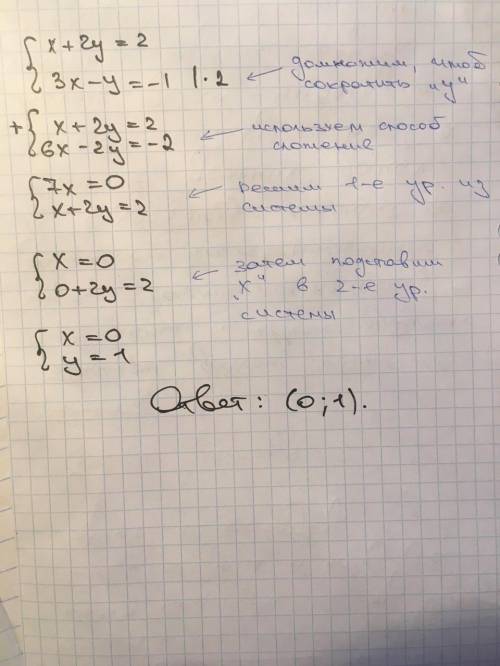 x + 2y = 2
3x - y = -1 | · 2 ← домножим, чтоб сократить „y"
+ x + 2y = 2
6x - 2y = -2 ← используем способ сложение
7x = 0
x + 2y = 2 ← решим 1-е ур. из системы
x = 0
0 + 2y = 2 ← затем подставим „x" в 2-е ур. системы
x = 0
y = 1
Ответ: (0; 1).